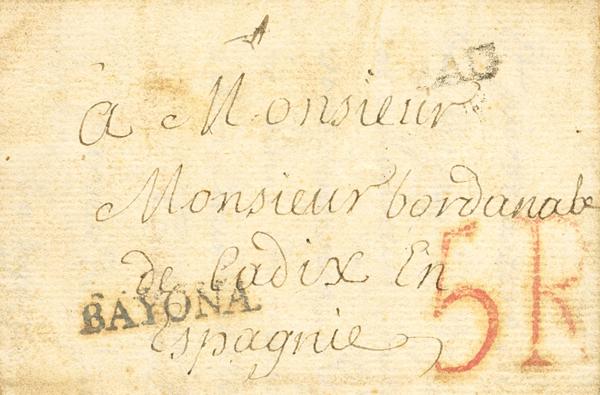 PAU
à Monsieur
Monsieur bordanabe
de Cadix En
Espagnie
BAYONA.
5R